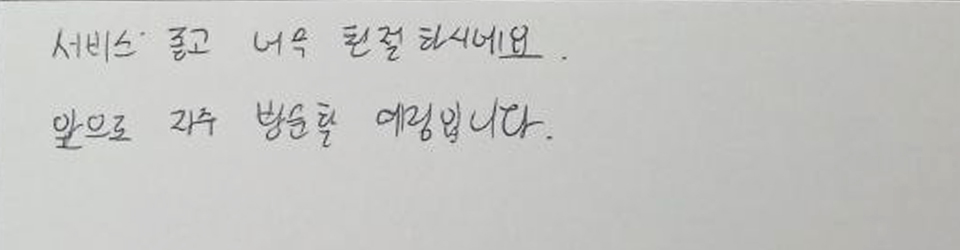 서비스 좋고 너무 친절하시네요.
앞으로 자주 방문할 예정입니다.